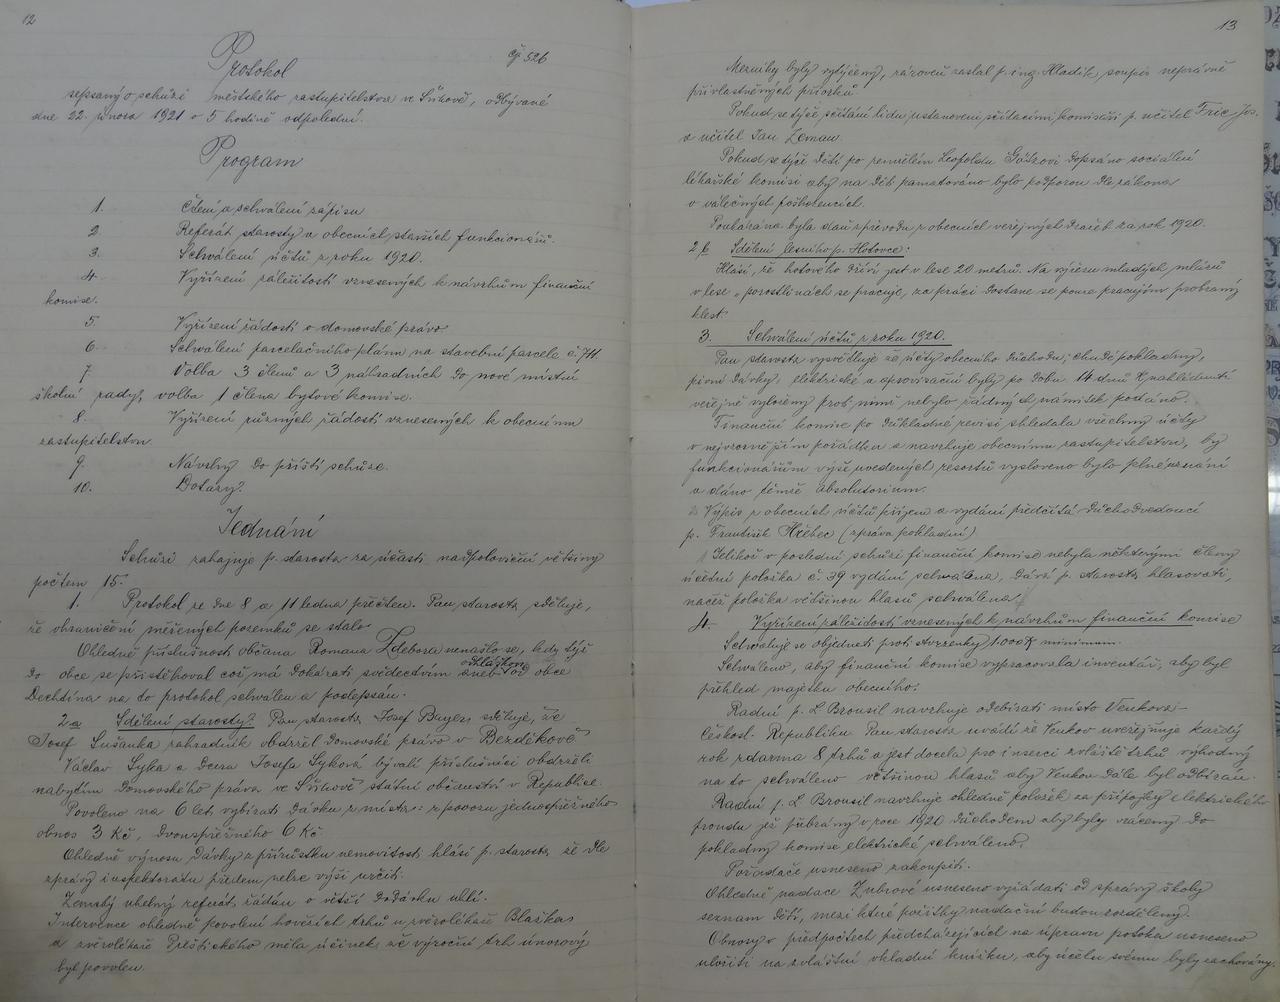 12
čj 526
Protokol
sepsaný o schůzi městského zastupitelstva ve Sušově, odbývané
dne 22. února 1921 o 5 hodině odpolední.
Program
1. Čtení a schválení zápisu
2 Referát starosty a obecních starších funkcionářů.
3. Schválení účtů z roku 1920.
4. Vyřízení záležitostí vznesených k návrhům finanční
komise.
5. Vyřízení žádostí o domovské právo
6. Schválení parcelačního plánu na stavební parcele č. 711.
7 Volba 3 členů a 3 náhradních do nové místní
školní rady, volba 1 člena bytové komise.
8. Vyřízení různých žádostí vznesených k obecnímu
zastupitelstvu
9. Návrhy do příští schůze.
10. Dotazy.
Jednání
Schůzi zahajuje p. starosta za účasti nadpoloviční většiny
počtem 15.
1. Protokol ze dne 8 a 11 ledna přečten. Pan starosta sděluje,
že ohraničení měřených pozemků se stalo
Ohledně příslušnosti občana Romana Zdebora nenašlo se, kdy týž
do obce se přistěhoval což má dokázati svědectvím aneb od obce
Dechtína na to protokol schválen a podepsán.
2a Sdělení starosty? Pan starosta Josef Buyer sděluje, že
Josef Sušanka zahradník obdržel domovské právo v Bezděkově
Václav Syka a dcera Josefa Syková bývalí příslušníci obdrželi
nabytím domovského práva ve státní občanství v Republice.
Povoleno na 6 let vybírati dávku z místa: z povozu jednospřežného
obnos 3 Kč, dvouspřežného 6 Kč
Ohledně výnosu dávky z přírůstku nemovitostí hlásí p. starosta, že dle
zprávy inspektorátu předem nelze výši určiti.
Zemský uhelný referát žádán o větší dodávku uhlí.
Intervence ohledně povolení hovězích trhů u zvěrolékaře Blaška
a zvěrolékaře Přeštického měla účinek že výroční trh únorový
byl povolen.
13
Mezníky byly vytýčeny, zároveň zaslal p. ing. Hladík soupis neprávně
přivlastněných pozemků
Pokud se týče sčítání lidu ustanoveni sčítacími komisaři p. učitel Fric Jos.
a učitel Jan Zeman.
Pokud se týče dětí po zemřelém Leopoldu dopsáno sociální
lékařské komisi aby na děti pamatováno bylo podporou dle zákona
o válečných poškozencích.
Poukázána byla daň z převodu z obecních veřejných dražeb za rok 1920.
2b Sdělení lesního p. Hotovce:
Hlásí, že hotového dříví jest v lese 20 metrů. Na výřezu mladých mlází
v lese v porostlinách se pracuje, za práci dostane se pouze pracujícím probraný
klest.
3. Schválení účtů z roku 1920.
Pan starosta vysvětluje že účty obecního důchodu, chudé pokladny,
pivní dávky, elektrické a aprovisační byly po dobu 14 dnů k nahlédnutí
veřejně vyloženy proti nimž nebylo řádných námitek podáno.
Finanční komise po důkladné revisi shledala všechny účty
v nejvzornějším pořádku a navrhuje obecnímu zastupitelstvu, by
funkcionářům výše uvedených resortů vysloveno bylo plné uznání
a dáno témže absolutorium.
Výpis z obecních účtů příjem a vydání předčítá důchodvedoucí
p. František Hřebec (zpráva pokladní)
Jelikož v poslední schůzi finanční komise nebyla některými členy
účetní položka č. 39 vydání schválena, dává p. starosta hlasovati,
načež položka většinou hlasů schválena.
4. Vyřízení záležitostí vznesených k návrhům finanční komise
Schvaluje se objednati proti stvrzenky 1.000 K minimum.
Schváleno, aby finanční komise vypracovala inventář, aby byl
přehled majetku obecního.
Radní p. L Brousil navrhuje odebírati místo Venkova
Českosl. Republiku Pan starosta uvádí že Venkov uveřejňuje každý
rok zdarma 8 trhů a jest docela pro inserci zvláště trhů výhodný
na to schváleno většinou hlasů aby Venkov dále byl odbírán.
Radní p. L Brousil navrhuje ohledně položek za přípojky elektrického
proudu jež přibrány v roce 1920 důchodem aby byly vráceny do
pokladny komise elektrické schváleno.
Pořadače usneseno zakoupiti.
Ohledně nadace Zubrové usneseno vyžádati od správy školy
seznam dětí, mezi které požitky nadační budou rozděleny.
Obnosy v předpočtech předcházejících na úpravu potoka usneseno
uložiti na zvláštní vkladní knížku, aby účelu svému byly zachovány.